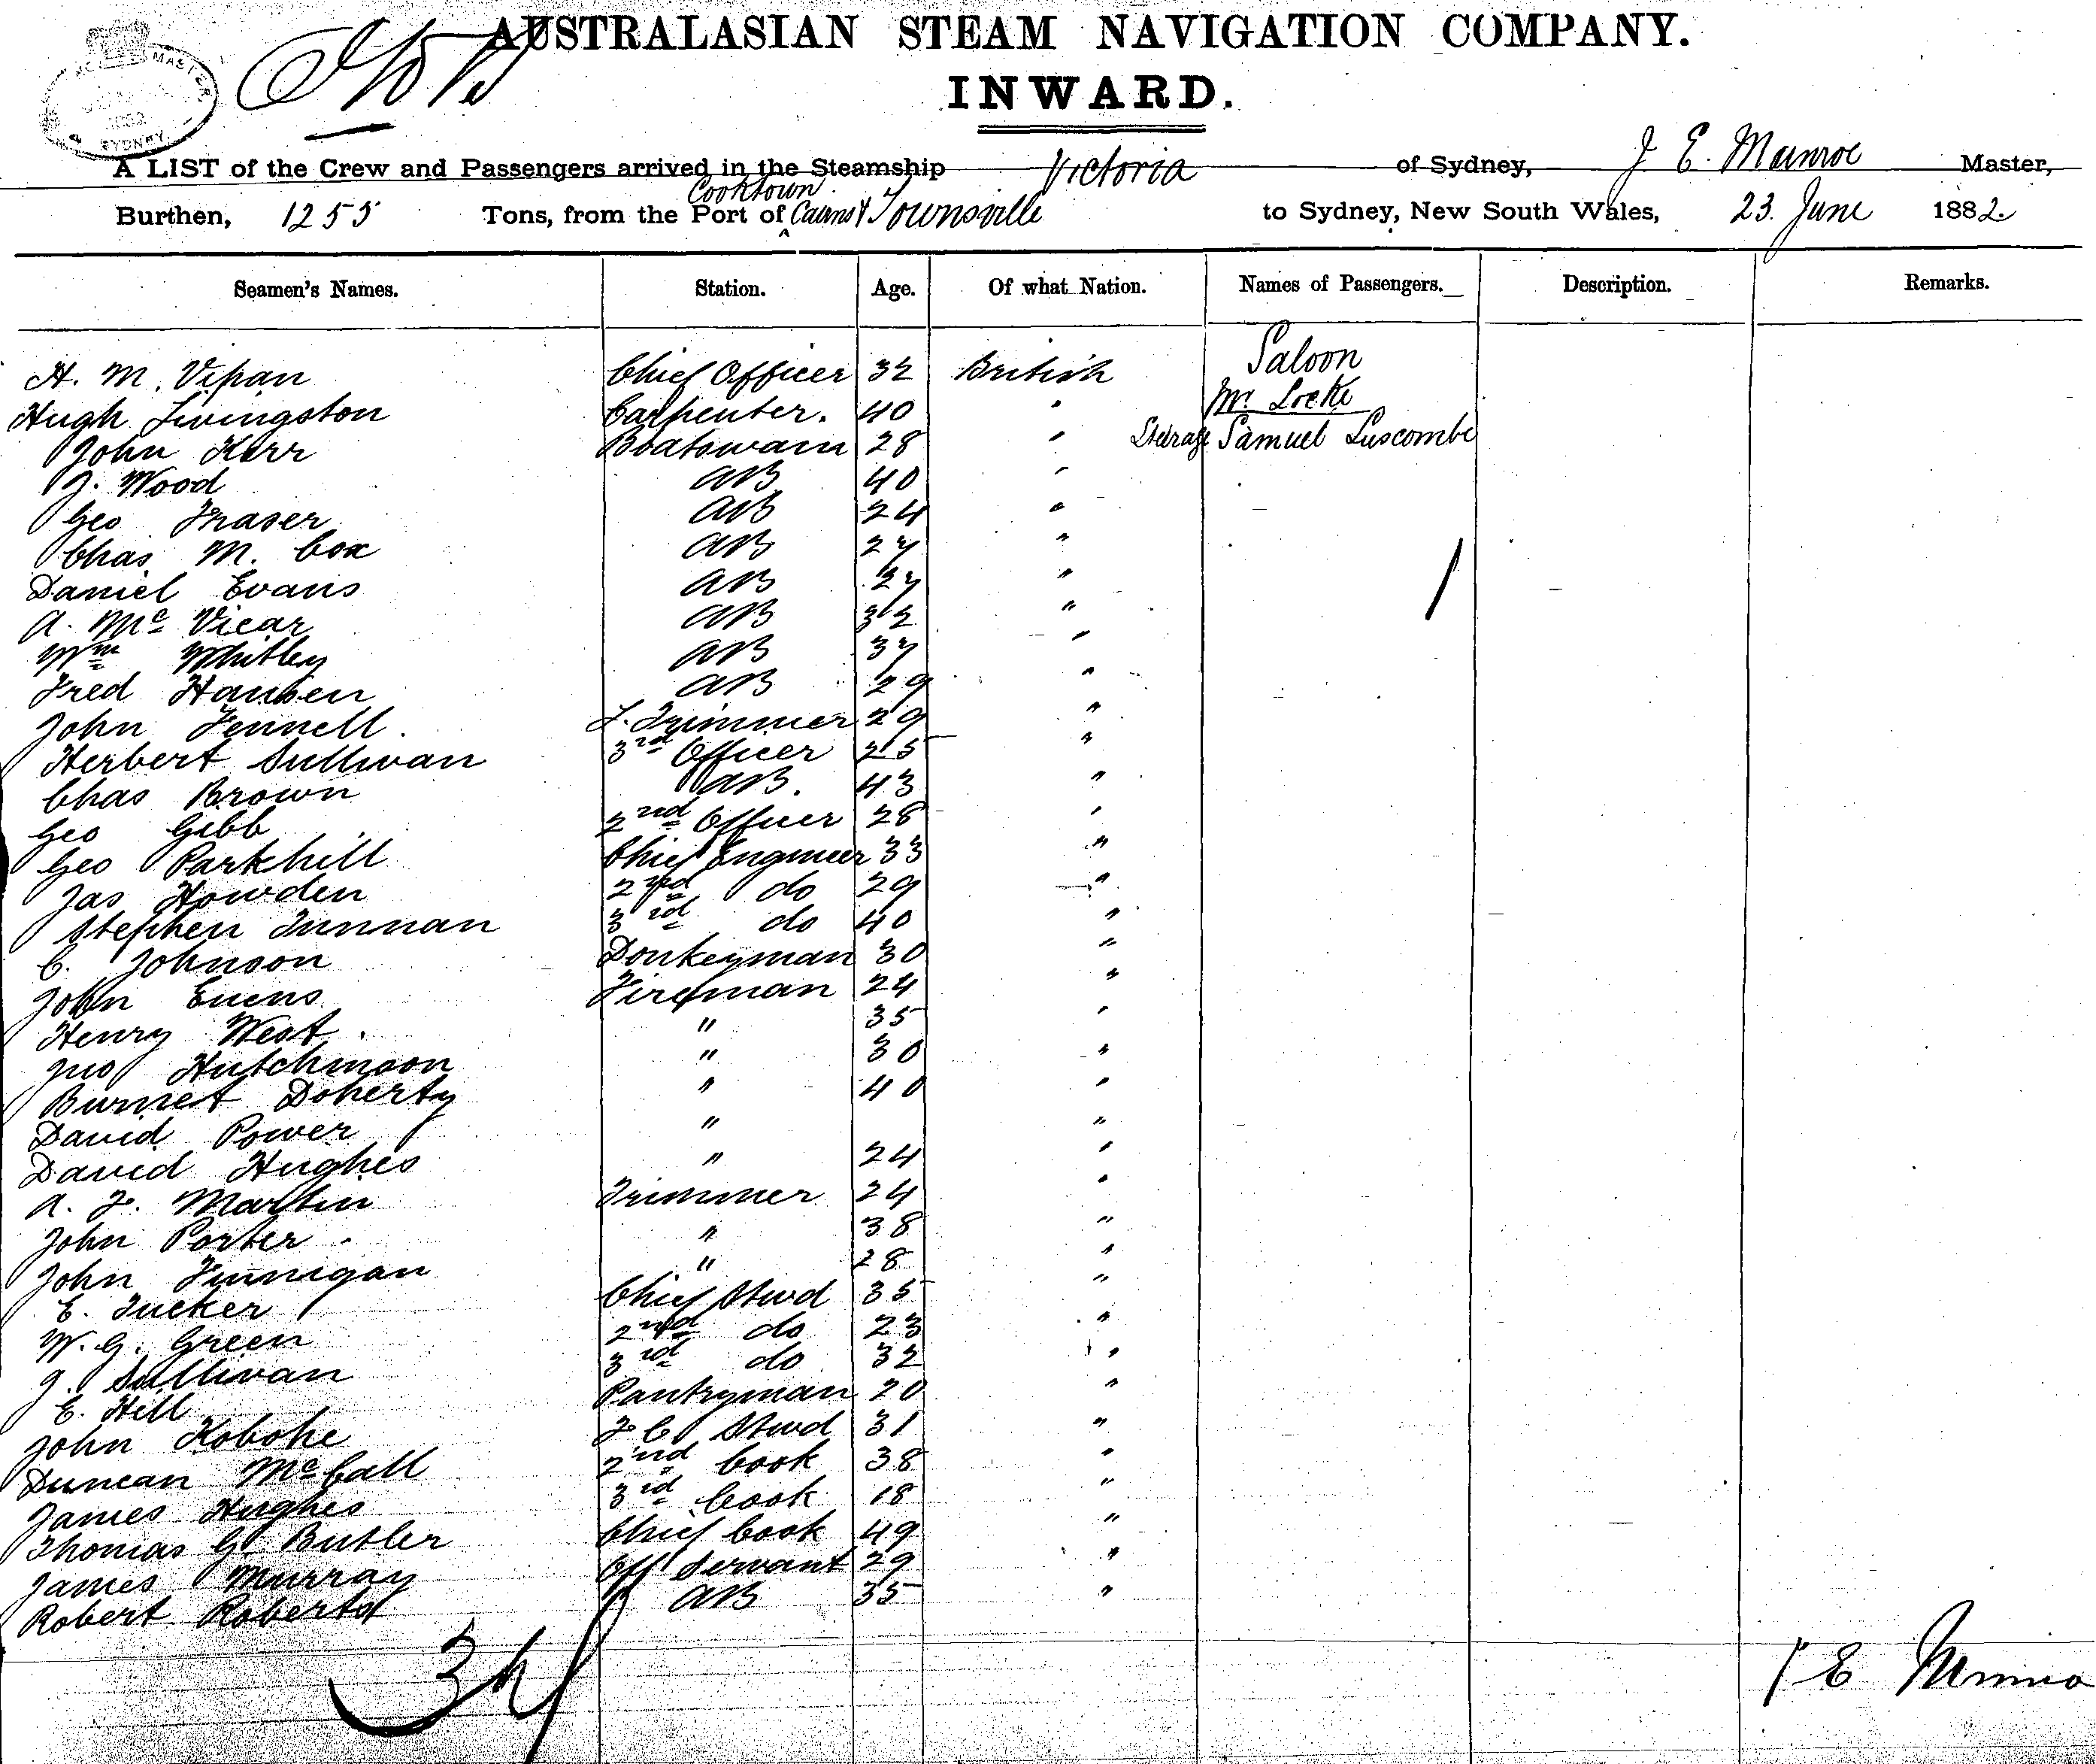 AUSTRALASIAN STEAM NAVIGATION COMPANY.
INWARD.
MASTER
SYDNEY
A LIST of the Crew and Passengers arrived in the Steamship Victoria of Sydney, J E. Munroe Master,
Cooktown
Burthen, 1255 Tons, from the Port of Cairns & Townsville to Sydney, New South Wales, 23. June 1882.
Seamen's Names. Station. Age. Of what Nation. Names of Passengers. Description. Remarks.
Saloon
H. M. Vipan Chief Officer 32 British
Mr. Locke
Hugh Livingston Carpenter. 40 "
John Kerr Boatswain 28 " Steerage Samuel Luscombe
J. Wood AB 40 "
Geo Fraser AB 24 "
Chas M. Cox AB 27 "
Daniel Evans AB 27 "
A. Mc Vicar AB 32 "
Wm Whitley AB 37 "
Fred Hansen AB 29 "
John Fennell. L. Trimmer 29 "
Herbert Sullivan 3rd Officer 25 "
Chas Brown AB. 43 "
Geo Gibb 2nd Officer 28 "
Geo Parkhill Chief Engineer 33 "
Jas Howden 2nd do 29 "
Stephen Tunnan 3rd do 40 "
C. Johnson Donkeyman 30 "
John Euens Fireman 24 "
Henry West. " 35 "
Jno Hutchinson " 30 "
Burnet Doherty " 40 "
David Power " "
David Hughes " 24 "
A. F. Martin Trimmer 24 "
John Porter " 38 "
John Finnigan " 28 "
E. Tucker Chief Stwd 35 "
W. G. Green 2nd do 23 "
J. Sullivan 3rd do 32 "
E. Hill Pantryman 20 "
John Kobohe F C Stwd 31 "
Duncan McCall 2nd Cook 38 "
James Hughes 3rd Cook 18 "
Thomas G Butler Chief Cook 49 "
James Murray Off Servant 29 "
Robert Roberts AB 35 "
37
J E Munro